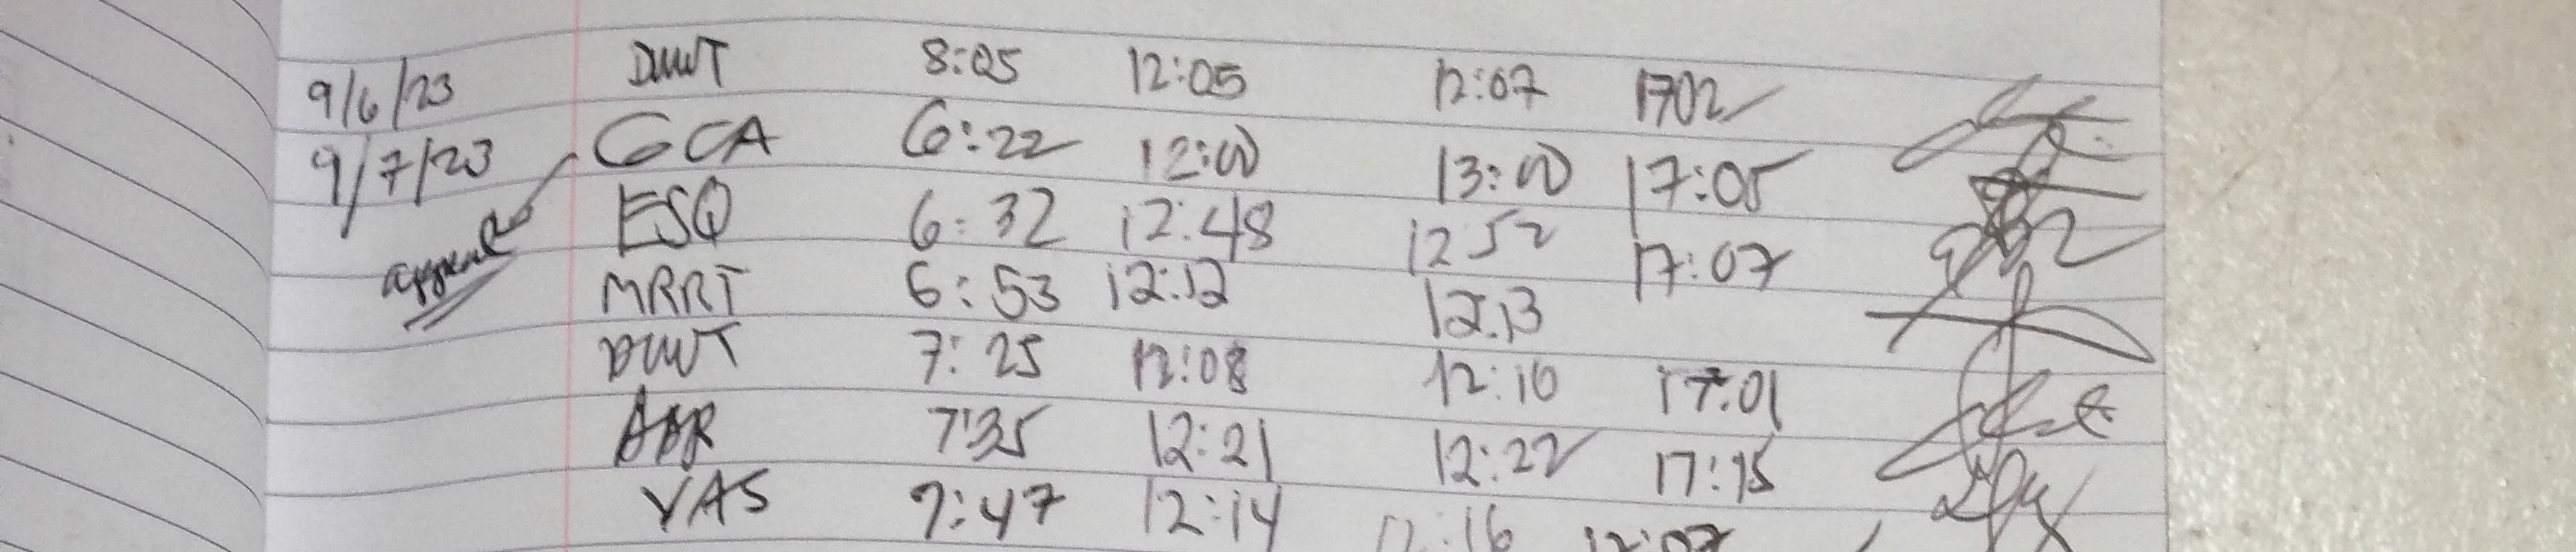 9/6/23 DWT 8:05 12:05 12:07 1702
9/7/23 GCA 6:22 12:00 13:00 17:05
ESQ 6:32 12:48 12 52 17:07
MRRT 6:53 12:12 12:13
DWT 7:25 12:08 12:10 17:01
7:35 12:21 12:22 17:15
VAS 7:47 12:14 12:16